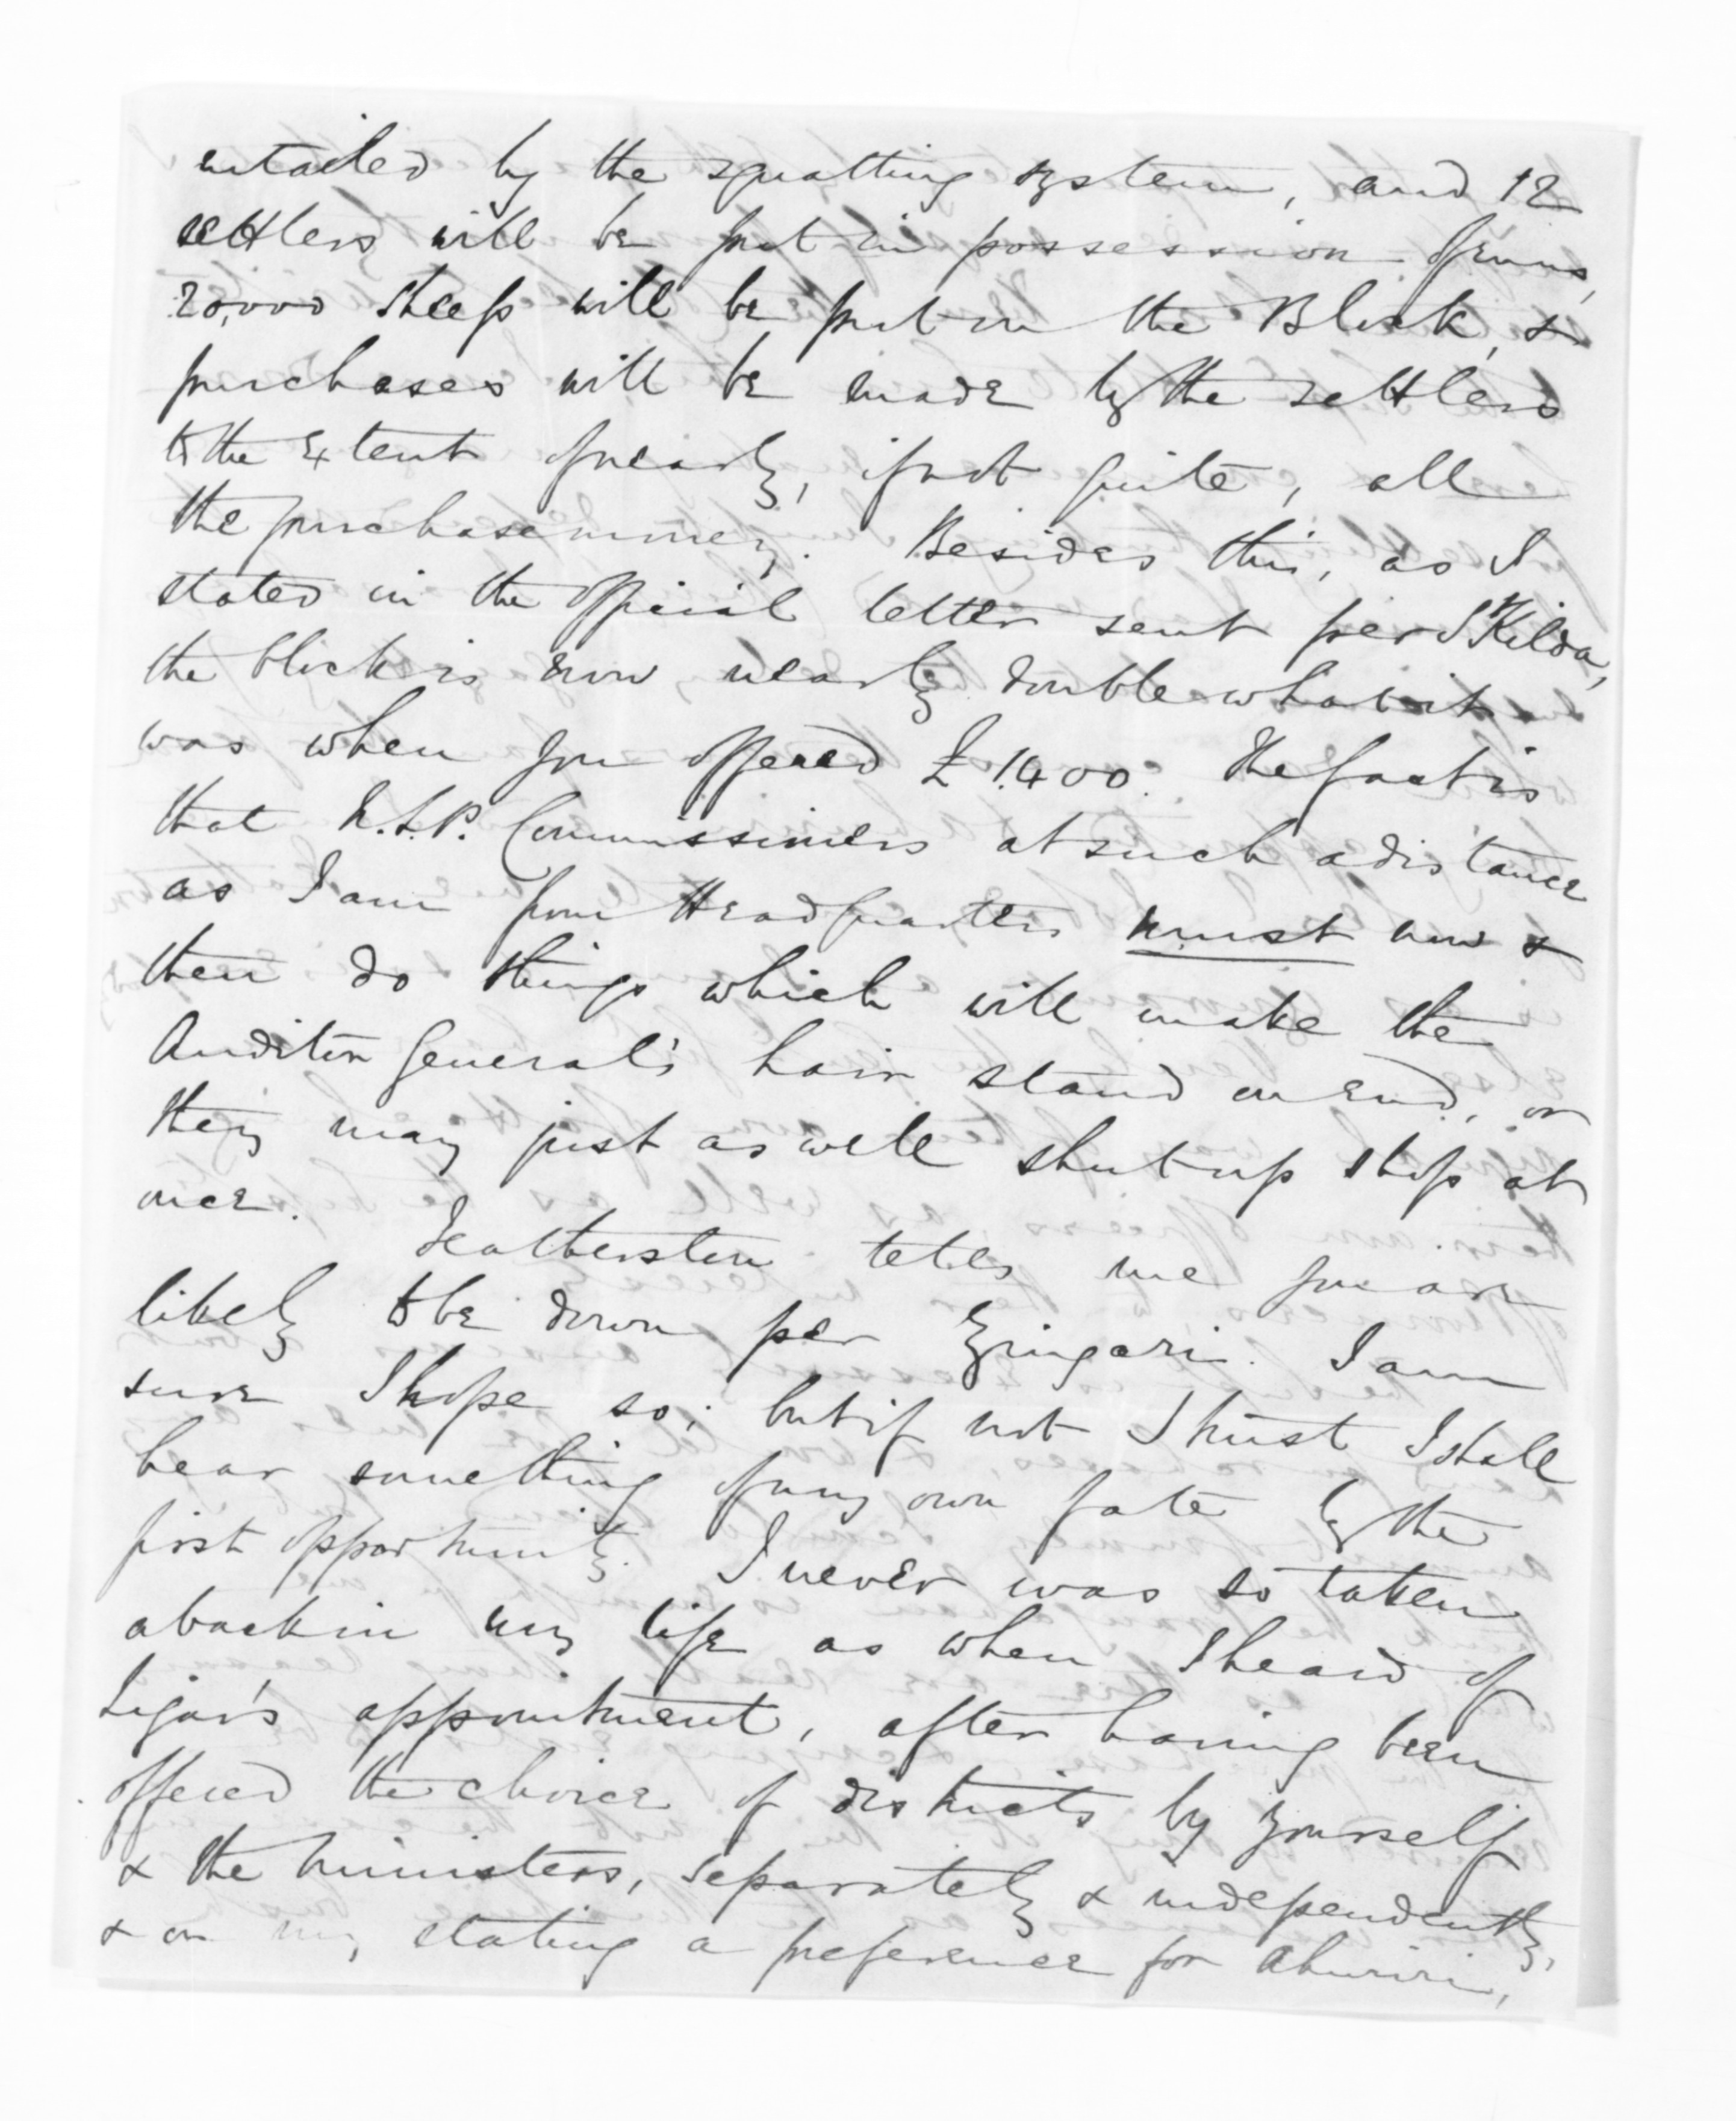 entailed by the squatting system, and 12
settlers will be put in possession of runs,
20,000 sheep will be put on the Block, &
purchases will be made by the settlers
to the extent of nearly, if not quite, all
the purchase money. Besides this, as I
stated in the official letter sent per St Kilda,
the block is now, nearly double what it
was when you offered £1400. The fact is
that N.L.P. Commissioners at such a distance
as I am from Headquarters must now &
then do things which will make the
Auditor General's hair stand on end, or
they may just as well shut up shop at
once.
Featherston tells me you are
likely to be down per Zingari. I am
sure I hope so; but if not I trust I shall
hear something of my own fate by the
first opportunity. I never was so taken
aback in my life as when I heard of
Ligar's appointment, after having been
offered the choice of districts by yourself
& the ministers, separately & independently,
& on my stating a preference for Ahuriri,